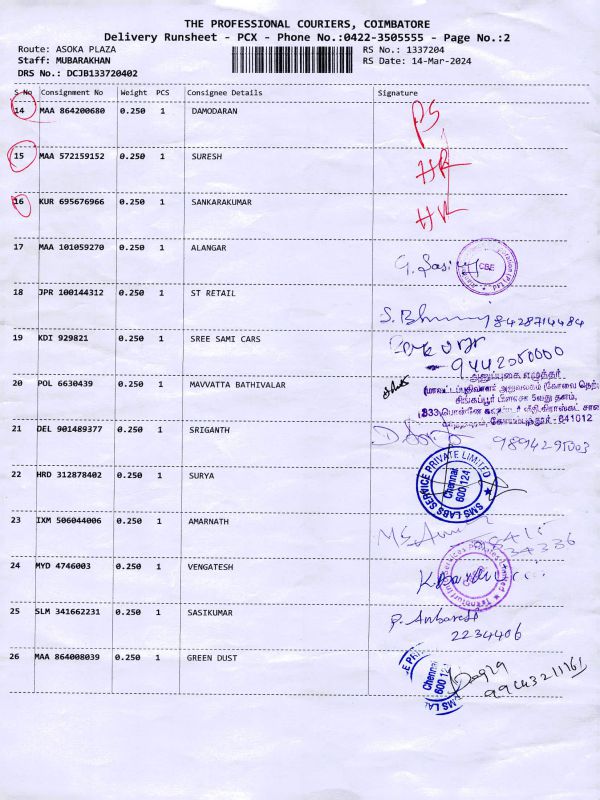 THE PROFESSIONAL COURIERS, COIMBATORE
Delivery Runsheet - PCX - Phone No.:0422-3505555 - Page No.:2
Route: ASOKA PLAZA RS No.: 1337204
Staff: MUBARAKHAN RS Date: 14-Mar-2024
DRS No.: DCJB133720402
S No Consignment No Weight PCS Consignee Details Signature
14 MAA 864200680 0.250 1 DAMODARAN
15 MAA 572159152 0.250 1 SURESH
16 KUR 695676966 0.250 1 SANKARAKUMAR
17 MAA 101059270 0.250 1 ALANGAR
CBE
18 JPR 100144312 0.250 1 ST RETAIL
S. 8428714484
19 KDI 929821 0.250 1 SREE SAMI CARS
9442050000
20 POL 6630439 0.250 1 MAVVATTA BATHIVALAR
அனுப்புகை எழுத்தர்
641012
21 DEL 901489377 0.250 1 SRIGANTH
9894295003
22 HRD 312878402 0.250 1 SURYA
SMS LABS SERVICE PRIVATE LIMITED
Chennai
600 124
23 IXM 506044006 0.250 1 AMARNATH
24 MYD 4746003 0.250 1 VENGATESH
25 SLM 341662231 0.250 1 SASIKUMAR
2234406
26 MAA 864008039 0.250 1 GREEN DUST
Chennai
600 124